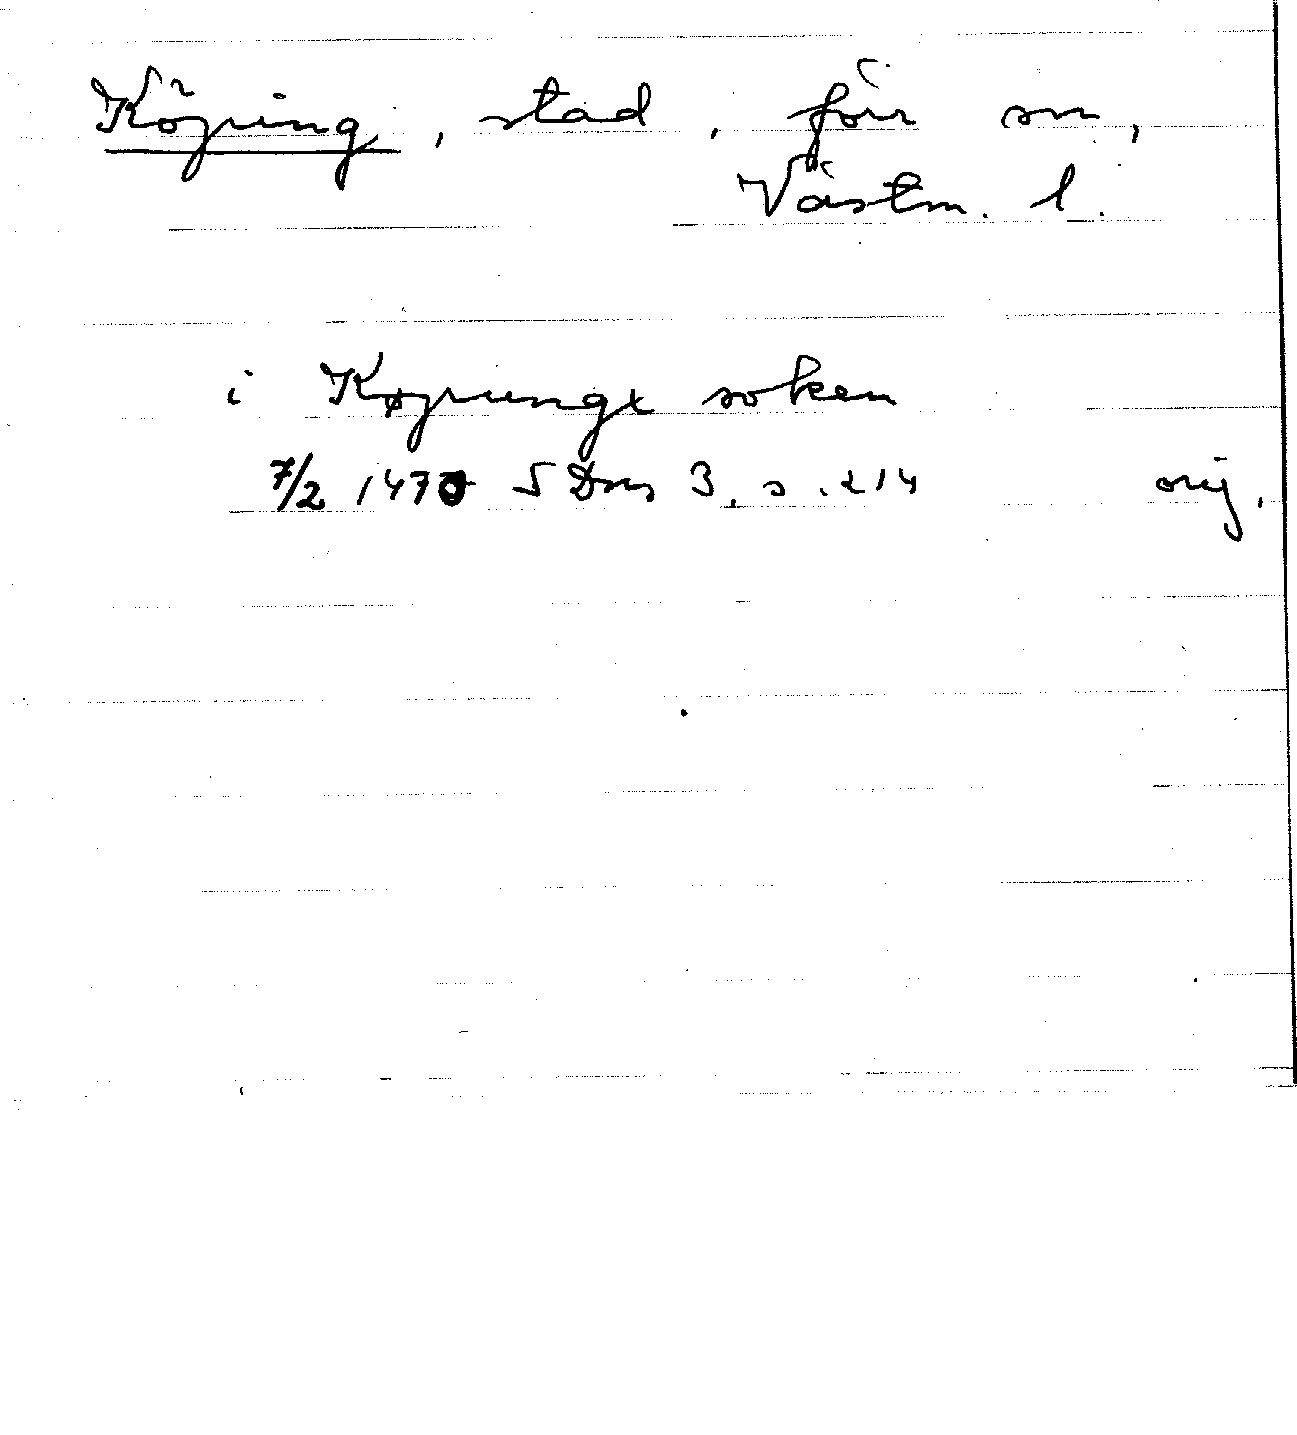 Köping, stad, förr sn,
Västm. l.
i Køpungx soken
7/2 1470 S Dns 3, s. 214 orig.